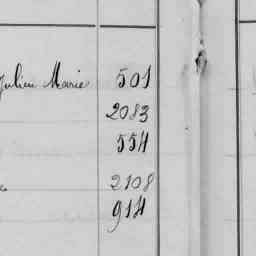 Julien Marie 501
2083
554
2108
914